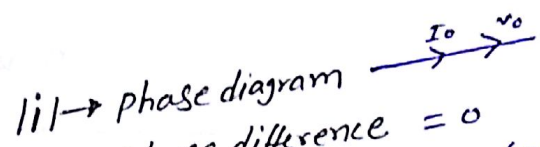 I₀ v₀
|i|→ phase diagram
difference = 0